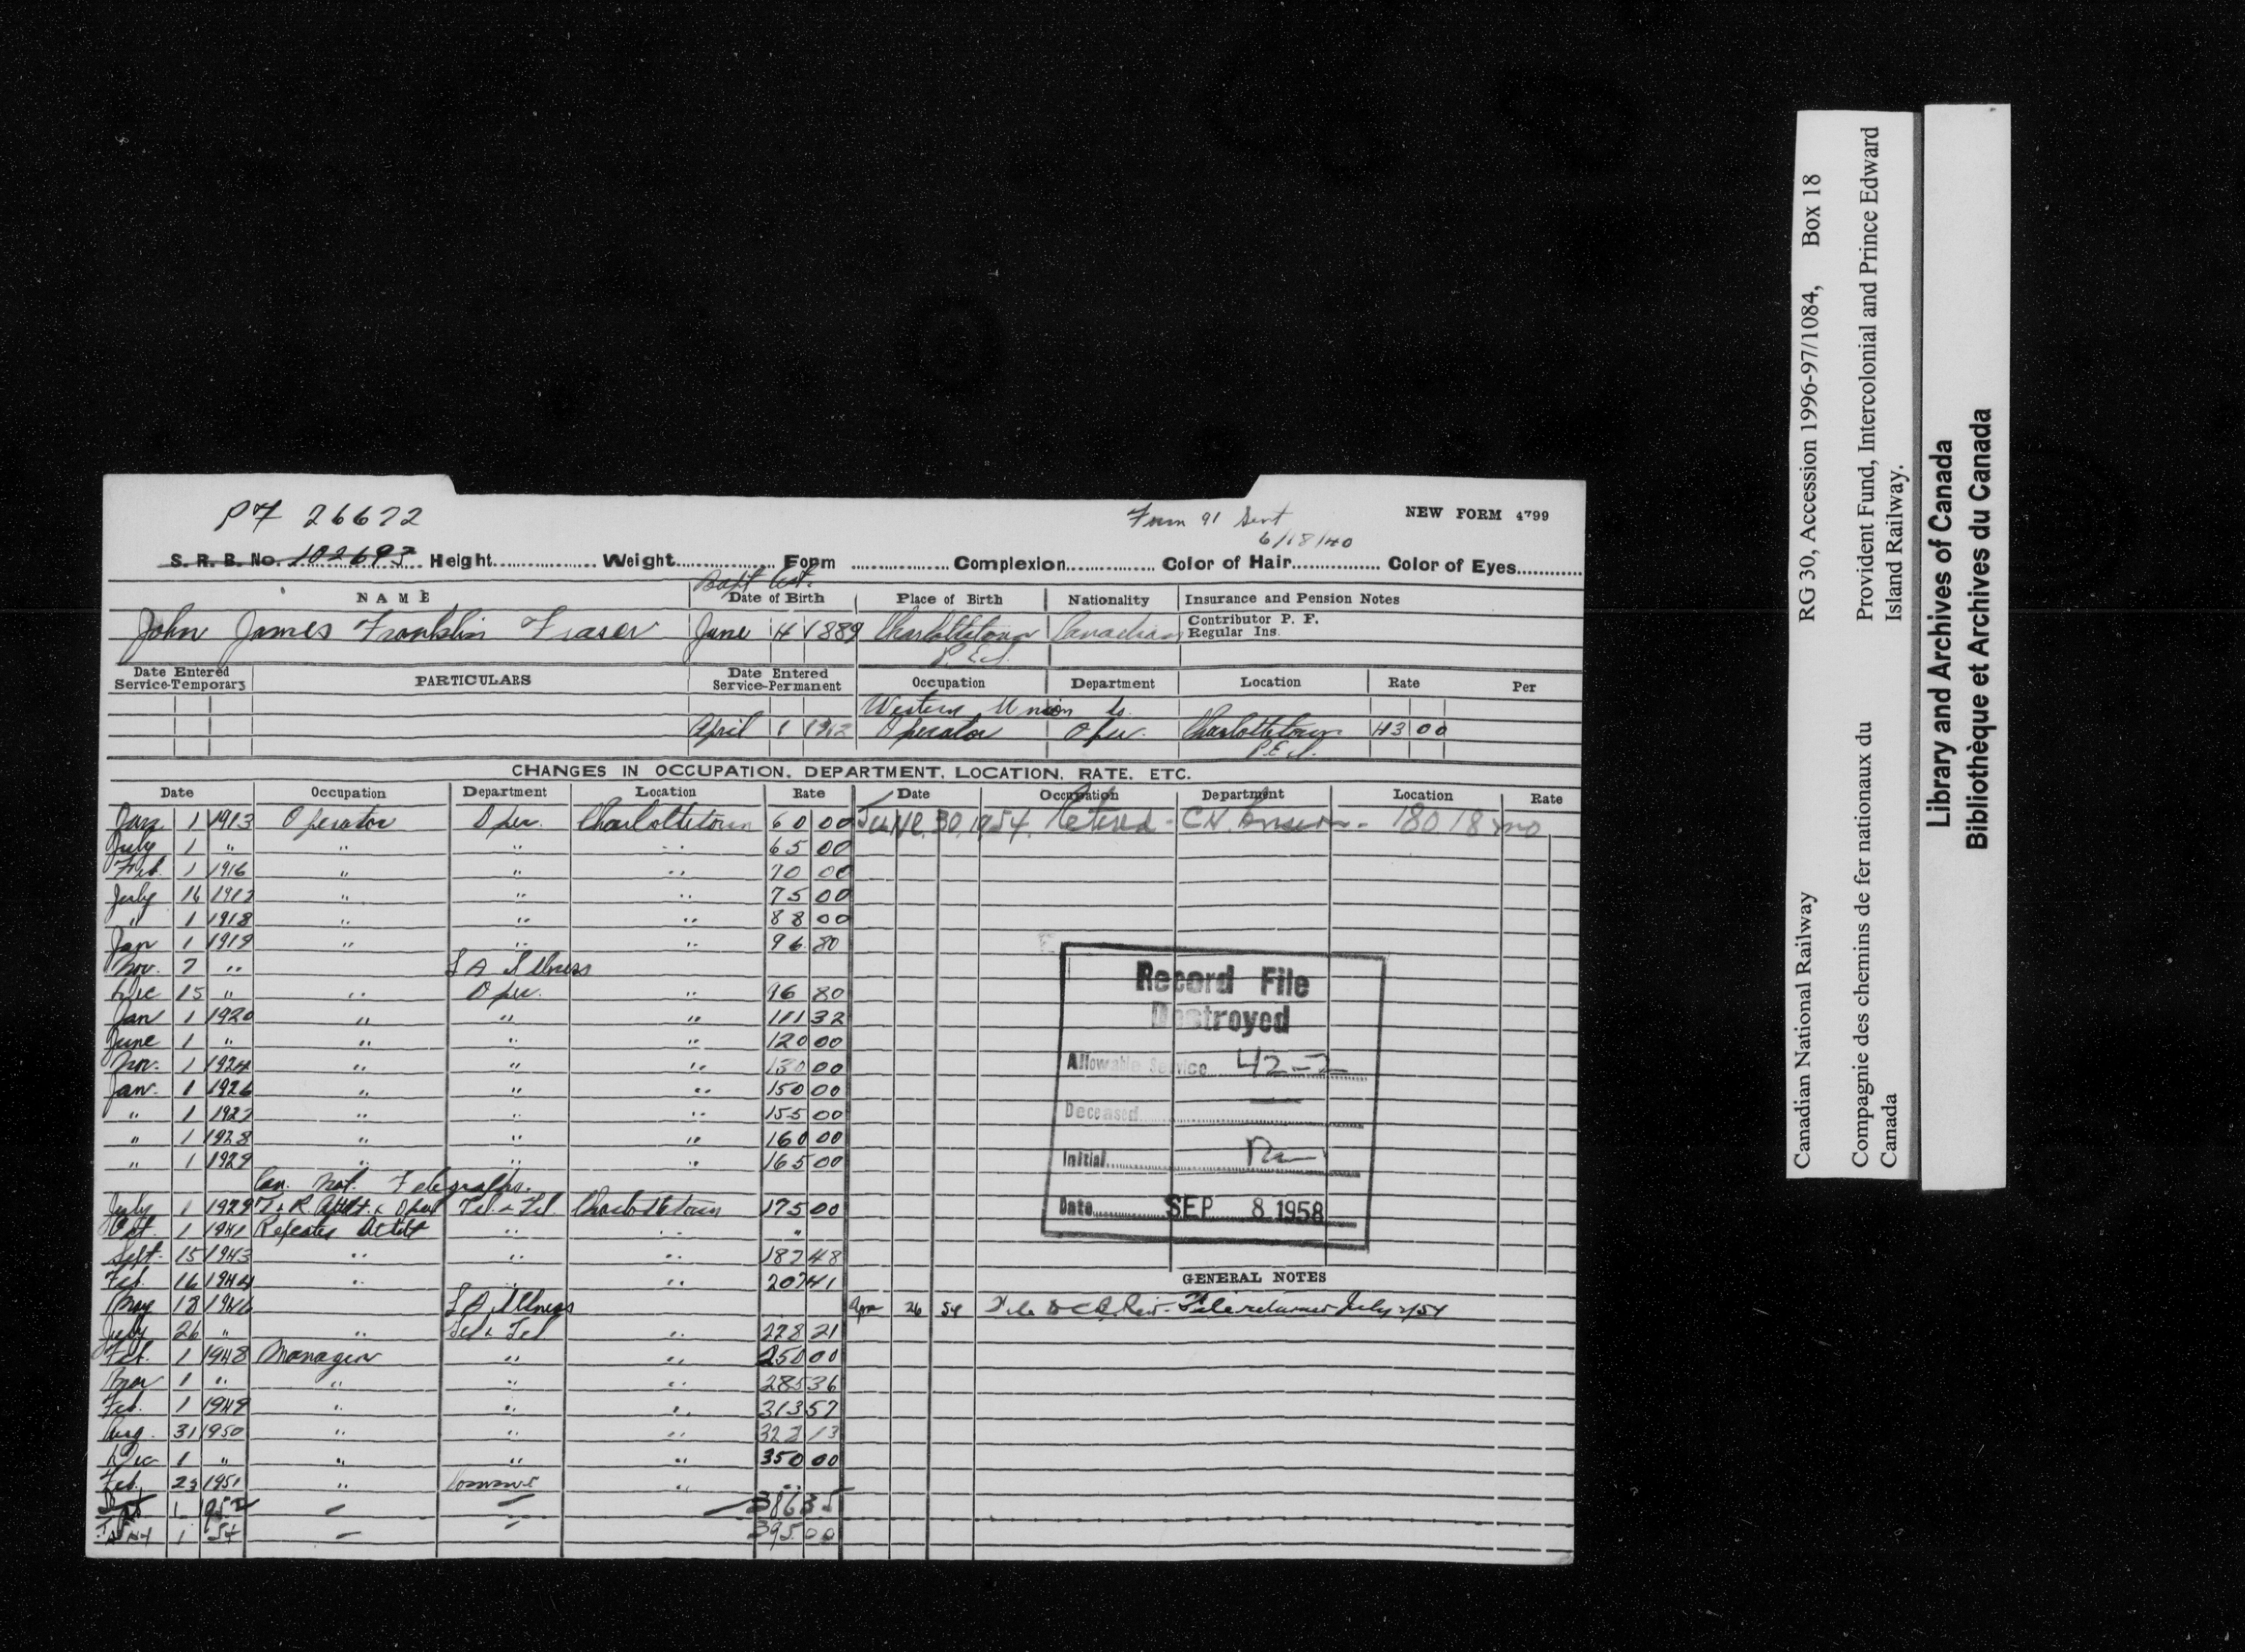 PF 26622
Form 91 Sent
6/18/40
NEW FORM 4799
S. R. B. No. 102693 Height Weight Form Complexion Color of Hair Color of Eyes
Bapt Cert.
NAME Date of Birth Place of Birth Nationality Insurance and Pension Notes
John James Franklin Fraser June 4 1889 Charlottetown Canadian Contributor P. F.
Regular Ins.
P.E.I.
Date Entered Service-Temporary PARTICULARS Date Entered Service-Permanent Occupation Department Location Rate Per
Western Union Co.
April 1 1912 Operator Oper. Charlottetown 43 00
P.E.I.
CHANGES IN OCCUPATION, DEPARTMENT, LOCATION, RATE, ETC.
Date Occupation Department Location Rate Date Occupation Department Location Rate
Jan 1 1913 Operator Oper. Charlottetown 60 00 JUNE 30 1954 Retired - C.N. Pension - 180 18 mo
July 1 " " " " 65 00
Feb. 1 1916 " " " 70 00
July 16 1917 " " " 75 00
" 1 1918 " " " 88 00
Jan 1 1919 " " " 96 80
Nov. 7 " L A Illness
Dec 15 " " Oper. " 96 80
Jan 1 1920 " " " 111 32
June 1 " " " " 120 00
Nov. 1 1924 " " " 130 00
Jan. 1 1926 " " " 150 00
" 1 1927 " " " 155 00
" 1 1928 " " " 160 00
" 1 1929 " " " 165 00
Can. Nat. Telegraphs.
July 1 1929 T. & R. Attdt. & Oper Tel. & Tel. Charlottetown 175 00
Oct. 1 1941 Repeater Attdt " " "
Sept. 15 1943 " " " 187 48
Feb. 16 1944 " " " 207 41
May 18 1946 L A Illness
July 26 " " Tel & Tel " 228 21
Feb. 1 1948 Manager " " 250 00
Mar 1 " " " " 285 36
Feb. 1 1949 " " " 313 57
Aug. 31 1950 " " " 322 13
Dec 1 " " " " 350 00
Feb. 23 1951 " " "
Sept 1 1952 386 35
Jan 1 54 395 00
Record File
Destroyed
Allowable Service 42-2
Deceased
Initial
Date SEP 8 1958
GENERAL NOTES
Apr 26 54 File returned July 2/54
Canadian National Railway RG 30, Accession 1996-97/1084, Box 18
Compagnie des chemins de fer nationaux du Canada
Provident Fund, Intercolonial and Prince Edward Island Railway.
Library and Archives of Canada
Bibliothèque et Archives du Canada